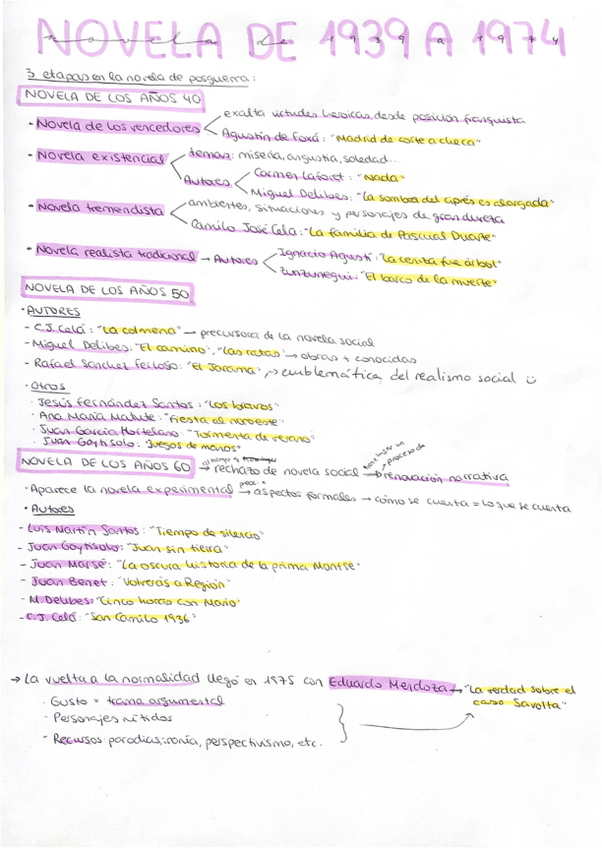 NOVELA DE 1939 A 1974
novela de 1939 a 1974
3 etapas en la novela de posguerra:
NOVELA DE LOS AÑOS 40
· Novela de los vencedores
exalta virtudes heroicas, desde posición franquista
Agustín de Foxá: "Madrid de corte a checa"
· Novela existencial
temas: miseria, angustia, soledad...
Autores
Carmen Laforet: "Nada"
Miguel Delibes: "La sombra del ciprés es alargada"
· Novela tremendista
ambientes, situaciones y personajes de gran dureza
Camilo José Cela: "La familia de Pascual Duarte"
· Novela realista tradicional → Autores
Ignacio Agustí: "La ceniza fue árbol"
Zunzunegui: "El barco de la muerte"
NOVELA DE LOS AÑOS 50
· AUTORES
- C.J. Cela: "La colmena" → precursora de la novela social
- Miguel Delibes: "El camino", "Las ratas" → obras + conocidas
- Rafael Sánchez Ferlosio: "El Jarama", → emblemática del realismo social ü
· Otros
· Jesús Fernández Santos: "Los bravos"
· Ana María Matute: "Fiesta al noroeste"
· Juan García Hortelano: "Tormenta de verano"
· Juan Goytisolo: "Juegos de manos"
NOVELA DE LOS AÑOS 60 → rechazo de novela social → renovación narrativa
al tiempo q
tiene lugar un
proceso de
· Aparece la novela experimental → aspectos formales → cómo se cuenta = lo que se cuenta
· Autores
- Luis Martín Santos: "Tiempo de silencio"
- Juan Goytisolo: "Juan sin tierra"
- Juan Marsé: "La oscura historia de la prima Montse"
- Juan Benet: "Volverás a Región"
- M. Delibes: "Cinco horas con Mario"
- C.J. Cela: "San Camilo 1936"
→ La vuelta a la normalidad llegó en 1975 con Eduardo Mendoza → "La verdad sobre el
caso Savolta"
· Gusto x trama argumental
- Personajes nítidos
- Recursos: parodias, ironía, perspectivismo, etc.